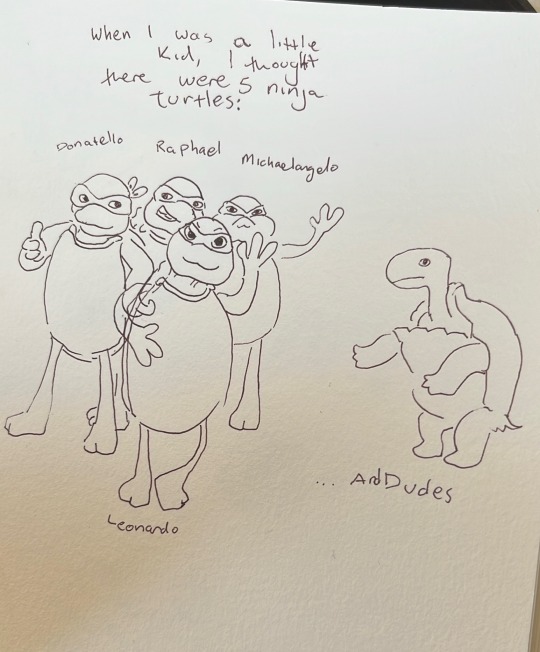 When I was a little
kid, I thought
there were 5 ninja
turtles:
Donatello
Raphael
Michaelangelo
Leonardo
... AndDudes